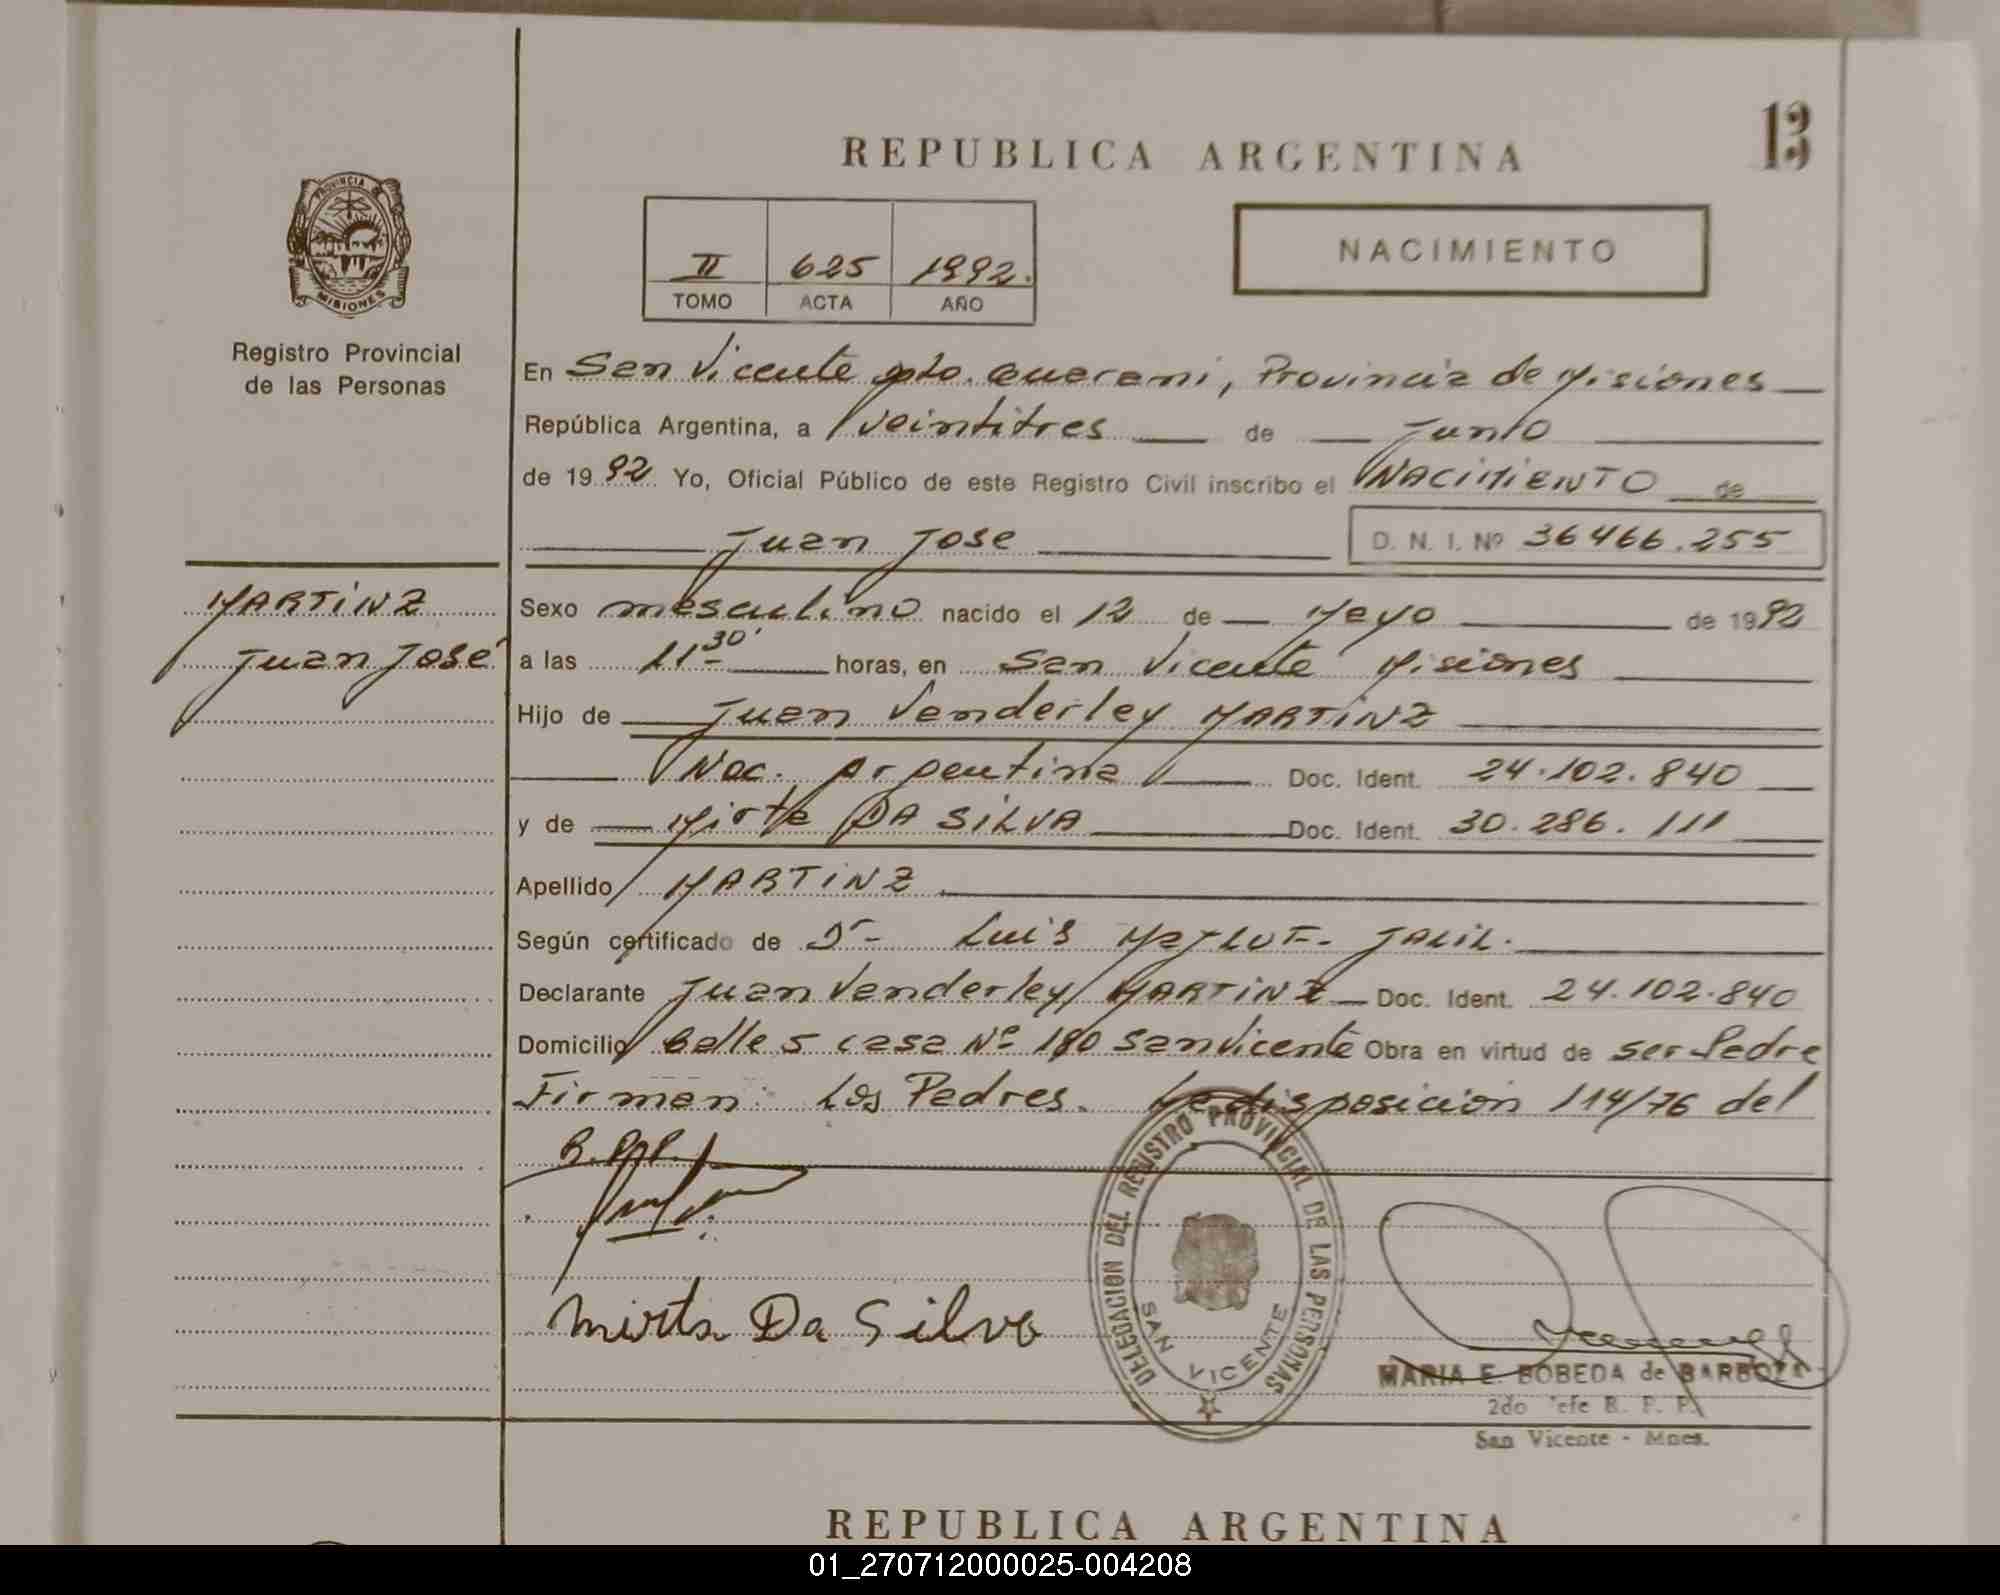 13
REPUBLICA ARGENTINA
PROVINCIA DE
MISIONES
II 625 1992.
TOMO ACTA AÑO
NACIMIENTO
Registro Provincial
de las Personas
En San Vicente gto. Guarani, Provincia de Misiones
República Argentina, a veintitres de Junio
de 1992 Yo, Oficial Público de este Registro Civil inscribo el NACIMIENTO de
Juan Jose D. N. I. Nº 36466.255
MARTINZ
Juan José
Sexo masculino nacido el 12 de Mayo de 1992
a las 11 30' horas, en San Vicente Misiones
Hijo de Juan Vanderley MARTINZ
Nac. Argentina Doc. Ident. 24.102.840
y de Mirta DA SILVA Doc. Ident. 30.286.111
Apellido MARTINZ
Según certificado de Dr Luis JALIL.
Declarante Juan Vanderley MARTINZ Doc. Ident. 24.102.840
Domicilio Calle 5 casa Nº 180 San Vicente Obra en virtud de ser Padre
Firman: Los Padres. disposición 114/76 del
R.P.P.
Mirta Da Silva
DELEGACION DEL REGISTRO PROVINCIAL DE LAS PERSONAS
SAN VICENTE
MARIA E. BOBEDA de BARBOZA
2do Jefe R. P. P.
San Vicente - Mnes.
REPUBLICA ARGENTINA
01_270712000025-004208